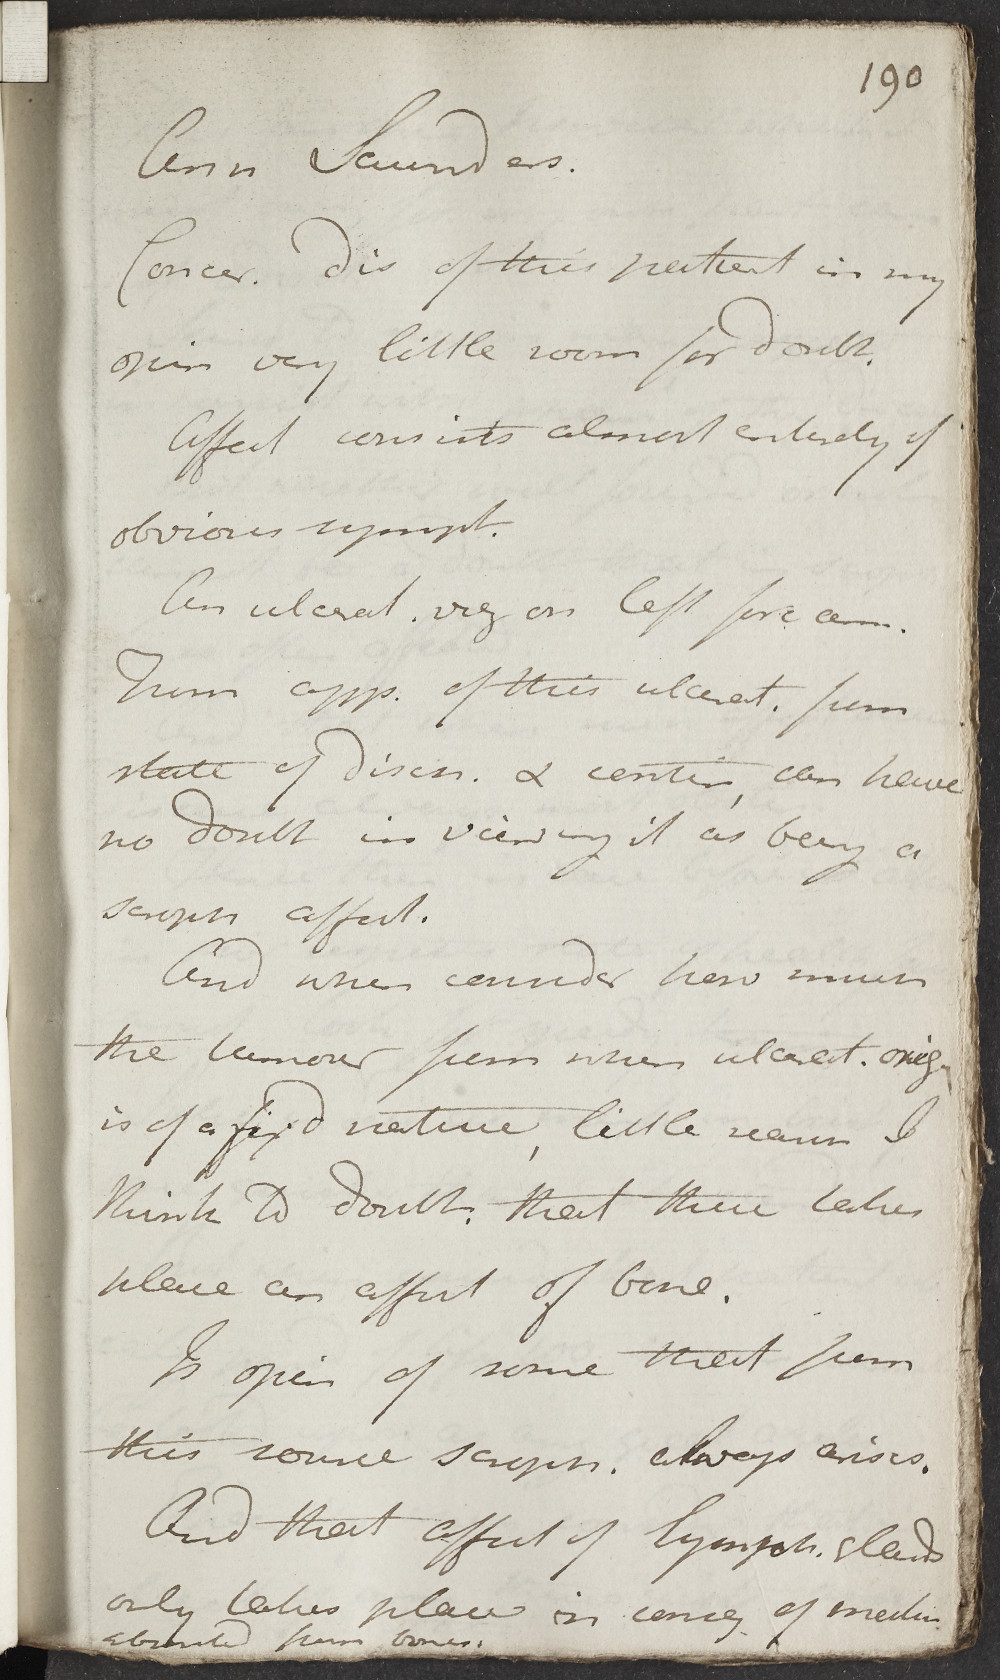 190
Ann Saunders.
Concer. Dis of this patient in my
opin very little room for doubt.
Affect consists almost entirely of
obvious sympt.
An ulcerat. viz on left fore arm.
From app. of this ulcerat. from
state of disch. & contin, can have
no doubt in viewing it as being a
scroph affect.
And when consider how much
the tumour from when ulcerat. orig
is of a fix'd nature, little reason I
think to doubt. that there takes
place an affect of bone.
Is opin of some that from
this source scroph. always arises.
And that affect of lymph. glands
only takes place in conseq. of
absorbed from bones.